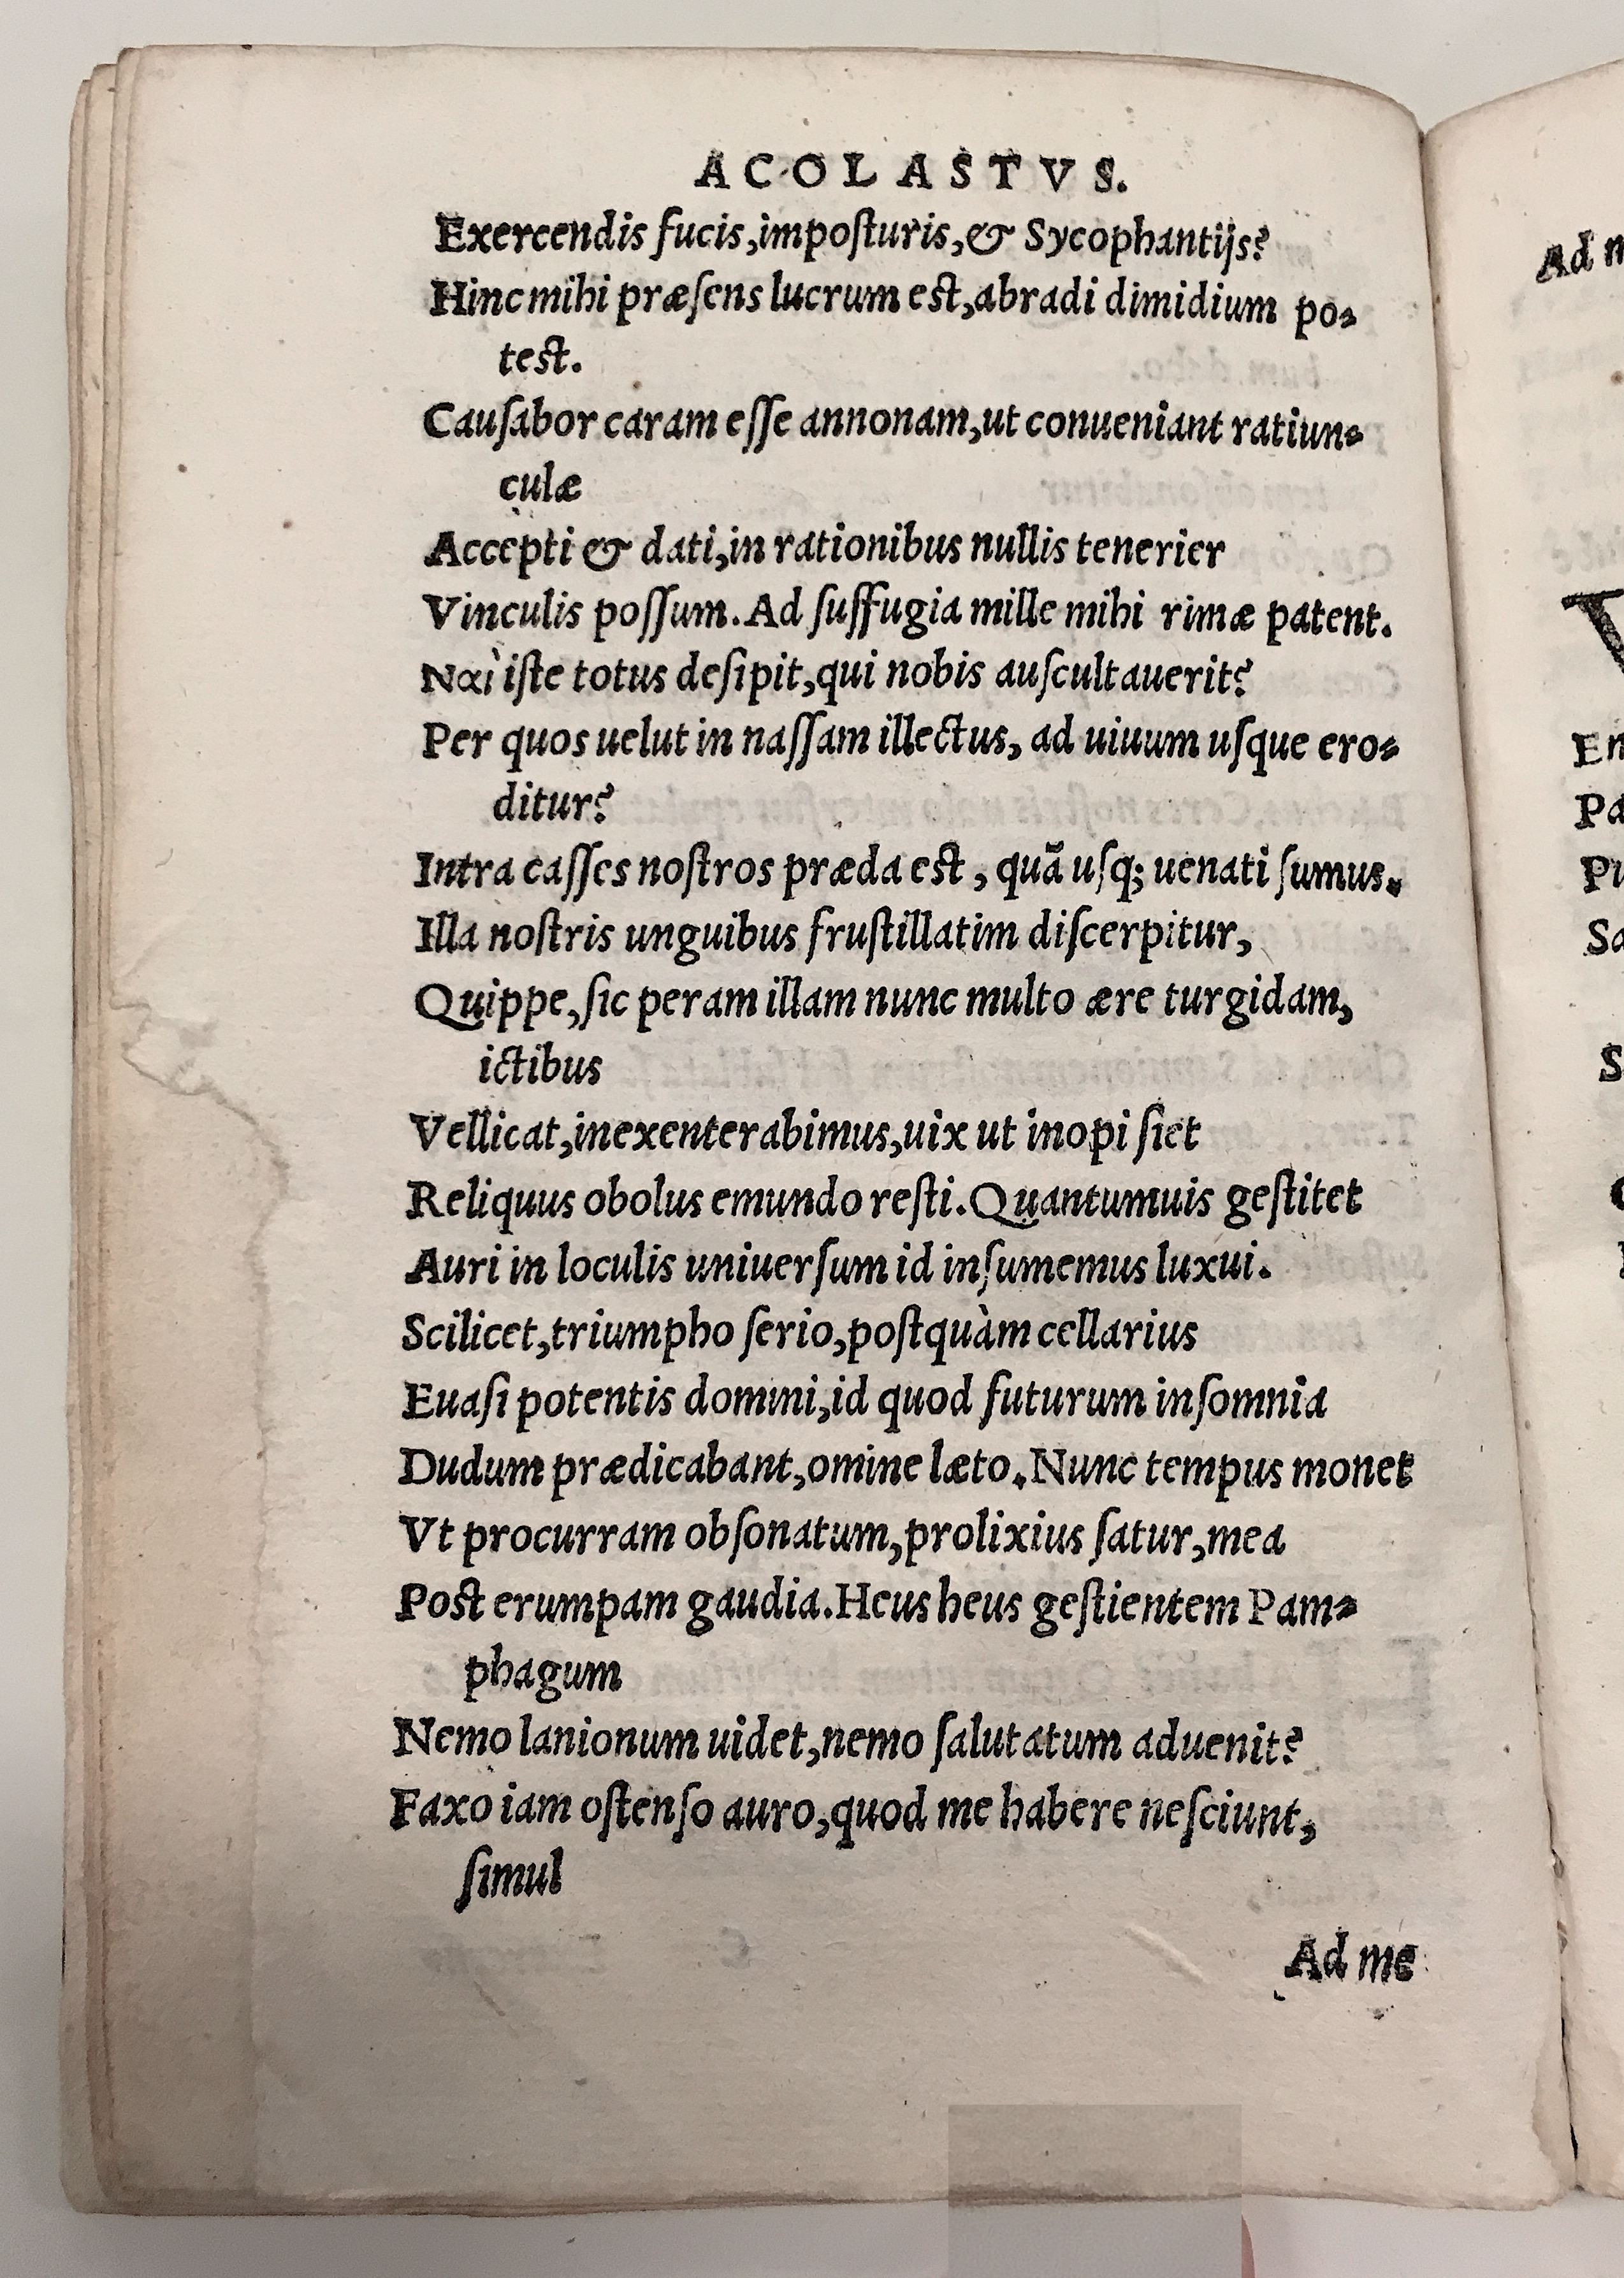 ACOLASTVS.
Exercendis fucis,impoſturis,& Sycophantijs?
Hinc mihi præſens lucrum eſt,abradi dimidium po-
teſt.
Cauſabor caram eſſe annonam,ut conueniant ratiun-
culæ
Accepti & dati,in rationibus nullis tenerier
Vinculis poſſum.Ad ſuffugia mille mihi rimæ patent.
Ναὶ iſte totus deſipit,qui nobis auſcultauerit?
Per quos uelut in naſſam illectus, ad uiuum uſque ero-
ditur?
Intra caſſes noſtros præda eſt, quã uſq; uenati ſumus.
Illa noſtris unguibus fruſtillatim diſcerpitur,
Quippe,ſic peram illam nunc multo ære turgidam,
ictibus
Vellicat,inexenterabimus,uix ut inopi ſiet
Reliquus obolus emundo reſti.Quantumuis geſtitet
Auri in loculis uniuerſum id inſumemus luxui.
Scilicet,triumpho ſerio,poſtquàm cellarius
Euaſi potentis domini,id quod futurum inſomnia
Dudum prædicabant,omine læto.Nunc tempus monet
Vt procurram obſonatum,prolixius ſatur,mea
Poſt erumpam gaudia.Heus heus geſtientem Pam-
phagum
Nemo lanionum uidet,nemo ſalutatum aduenit?
Faxo iam oſtenſo auro,quod me habere neſciunt,
ſimul
Ad me
Ad m
V
En
Pa
Pu
Sa
S